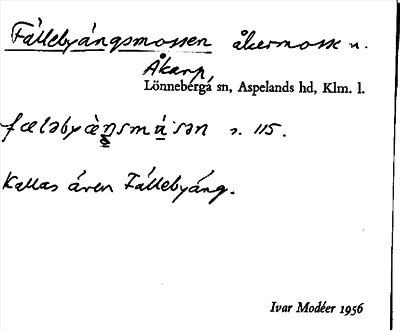 Fällebyängsmossen åkermosse n.
Åkarp,
Lönneberga sn, Aspelands hd, Klm. l.
fæləbyæ̀ŋsmú̱sən s. 115.
Kallas även Fällebyäng.
Ivar Modéer 1956